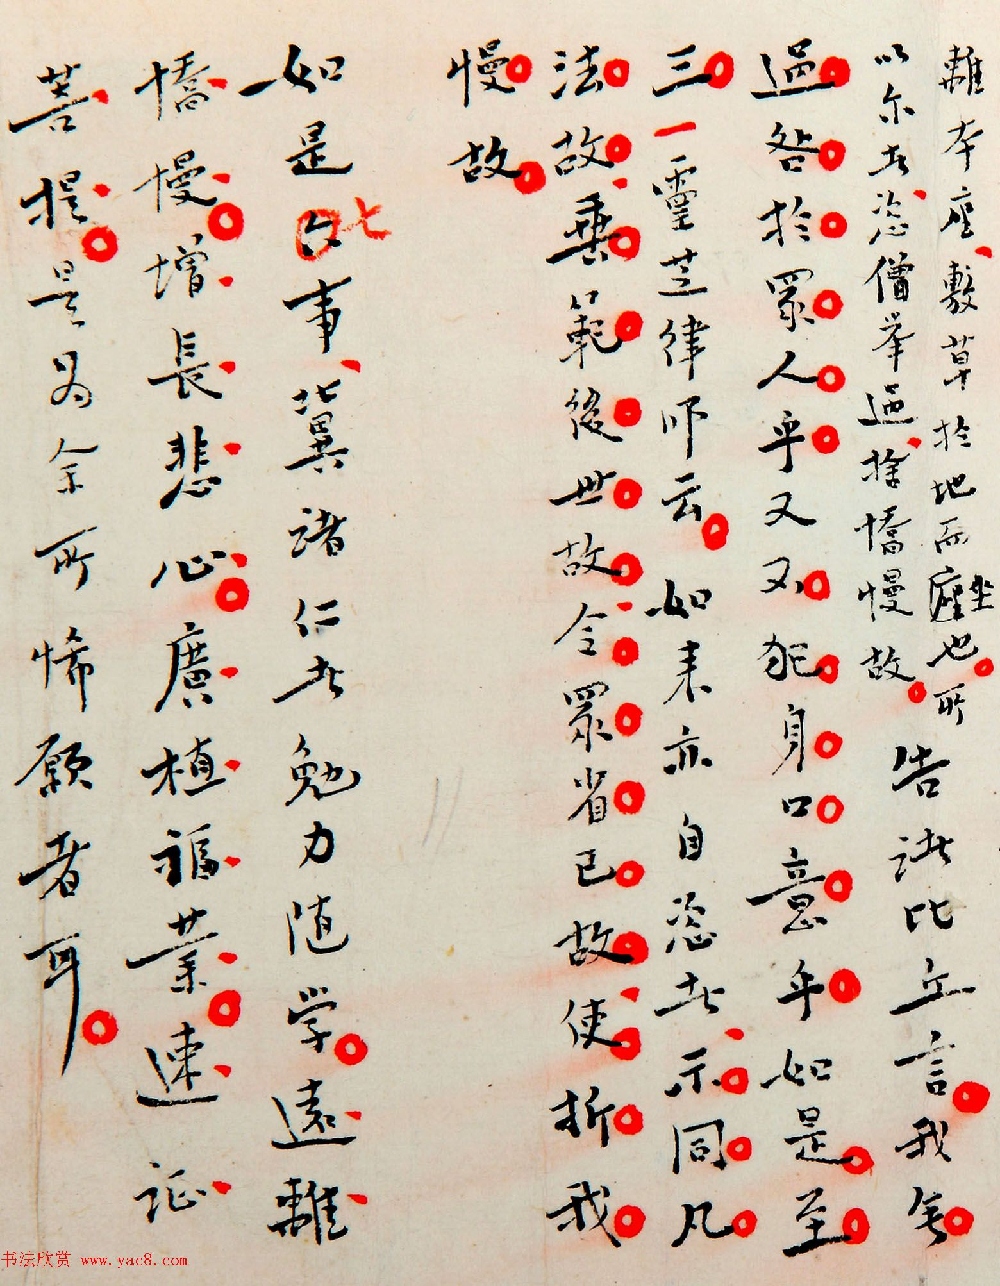 離本座、敷草於地而座坐也。所
以尔者、恣僧举過、捨憍慢故。
告诸比丘言。我無
過咎於眾人乎又不犯身口意乎如是至
三一靈芝律师云。如来亦自恣者、示同凡
法故、垂範後世故、令眾省己故、使折我
慢故。
如是七事、冀諸仁者勉力随学。遠離
憍慢。增長悲心。廣植福業。速证
菩提。是為余所悕願者耳。
书法欣赏 www.yac8.com